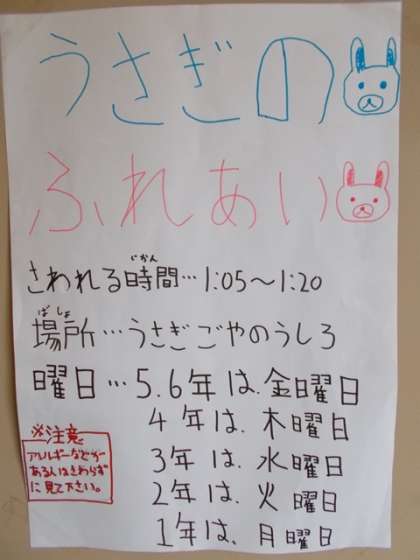 うさぎの
ふれあい
さわれる時間…1:05～1:20
じかん
場所…うさぎごやのうしろ
ばしょ
曜日…5.6年は.金曜日
4年は.木曜日
3年は.水曜日
2年は.火曜日
1年は.月曜日
※注意
アレルギーなどが
ある人はさわらず
に見て下さい。